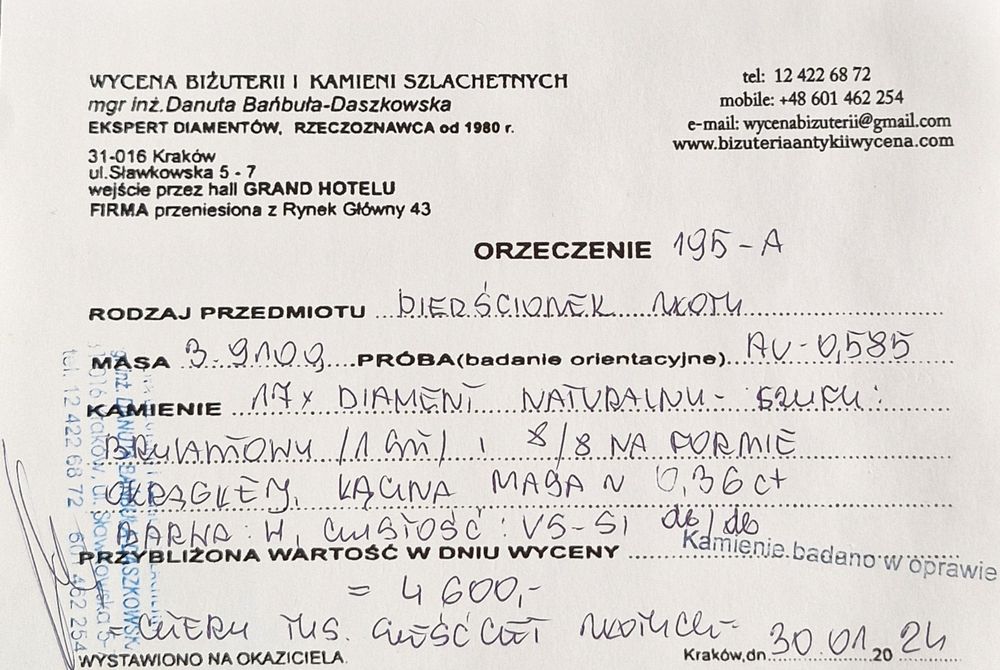 WYCENA BIŻUTERII I KAMIENI SZLACHETNYCH
mgr inż. Danuta Bańbuła-Daszkowska
EKSPERT DIAMENTÓW, RZECZOZNAWCA od 1980 r.
31-016 Kraków
ul.Sławkowska 5 - 7
wejście przez hall GRAND HOTELU
FIRMA przeniesiona z Rynek Główny 43
tel: 12 422 68 72
mobile: +48 601 462 254
e-mail: wycenabizuterii@gmail.com
www.bizuteriaantykiiwycena.com
ORZECZENIE 195-A
RODZAJ PRZEDMIOTU PIERŚCIONEK ZŁOTY
MASA 3.910g PRÓBA(badanie orientacyjne) AU-0,585
KAMIENIE 17x DIAMENT NATURALNY- SZLIFY:
BRYLANTOWY /1 i 8/8 NA FORMIE
OKRĄGŁEJ, ŁĄCZNA MASA ~ 0,36 ct
BARWA: H, CZYSTOŚĆ: VS-SI db/db
PRZYBLIŻONA WARTOŚĆ W DNIU WYCENY
Kamienie badano w oprawie
= 4 600,-
CZTERY TYS. SZEŚĆSET ZŁOTYCH-
WYSTAWIONO NA OKAZICIELA.
Kraków,dn 30.01.2024
tel. 12 422 68 72 601 462 254